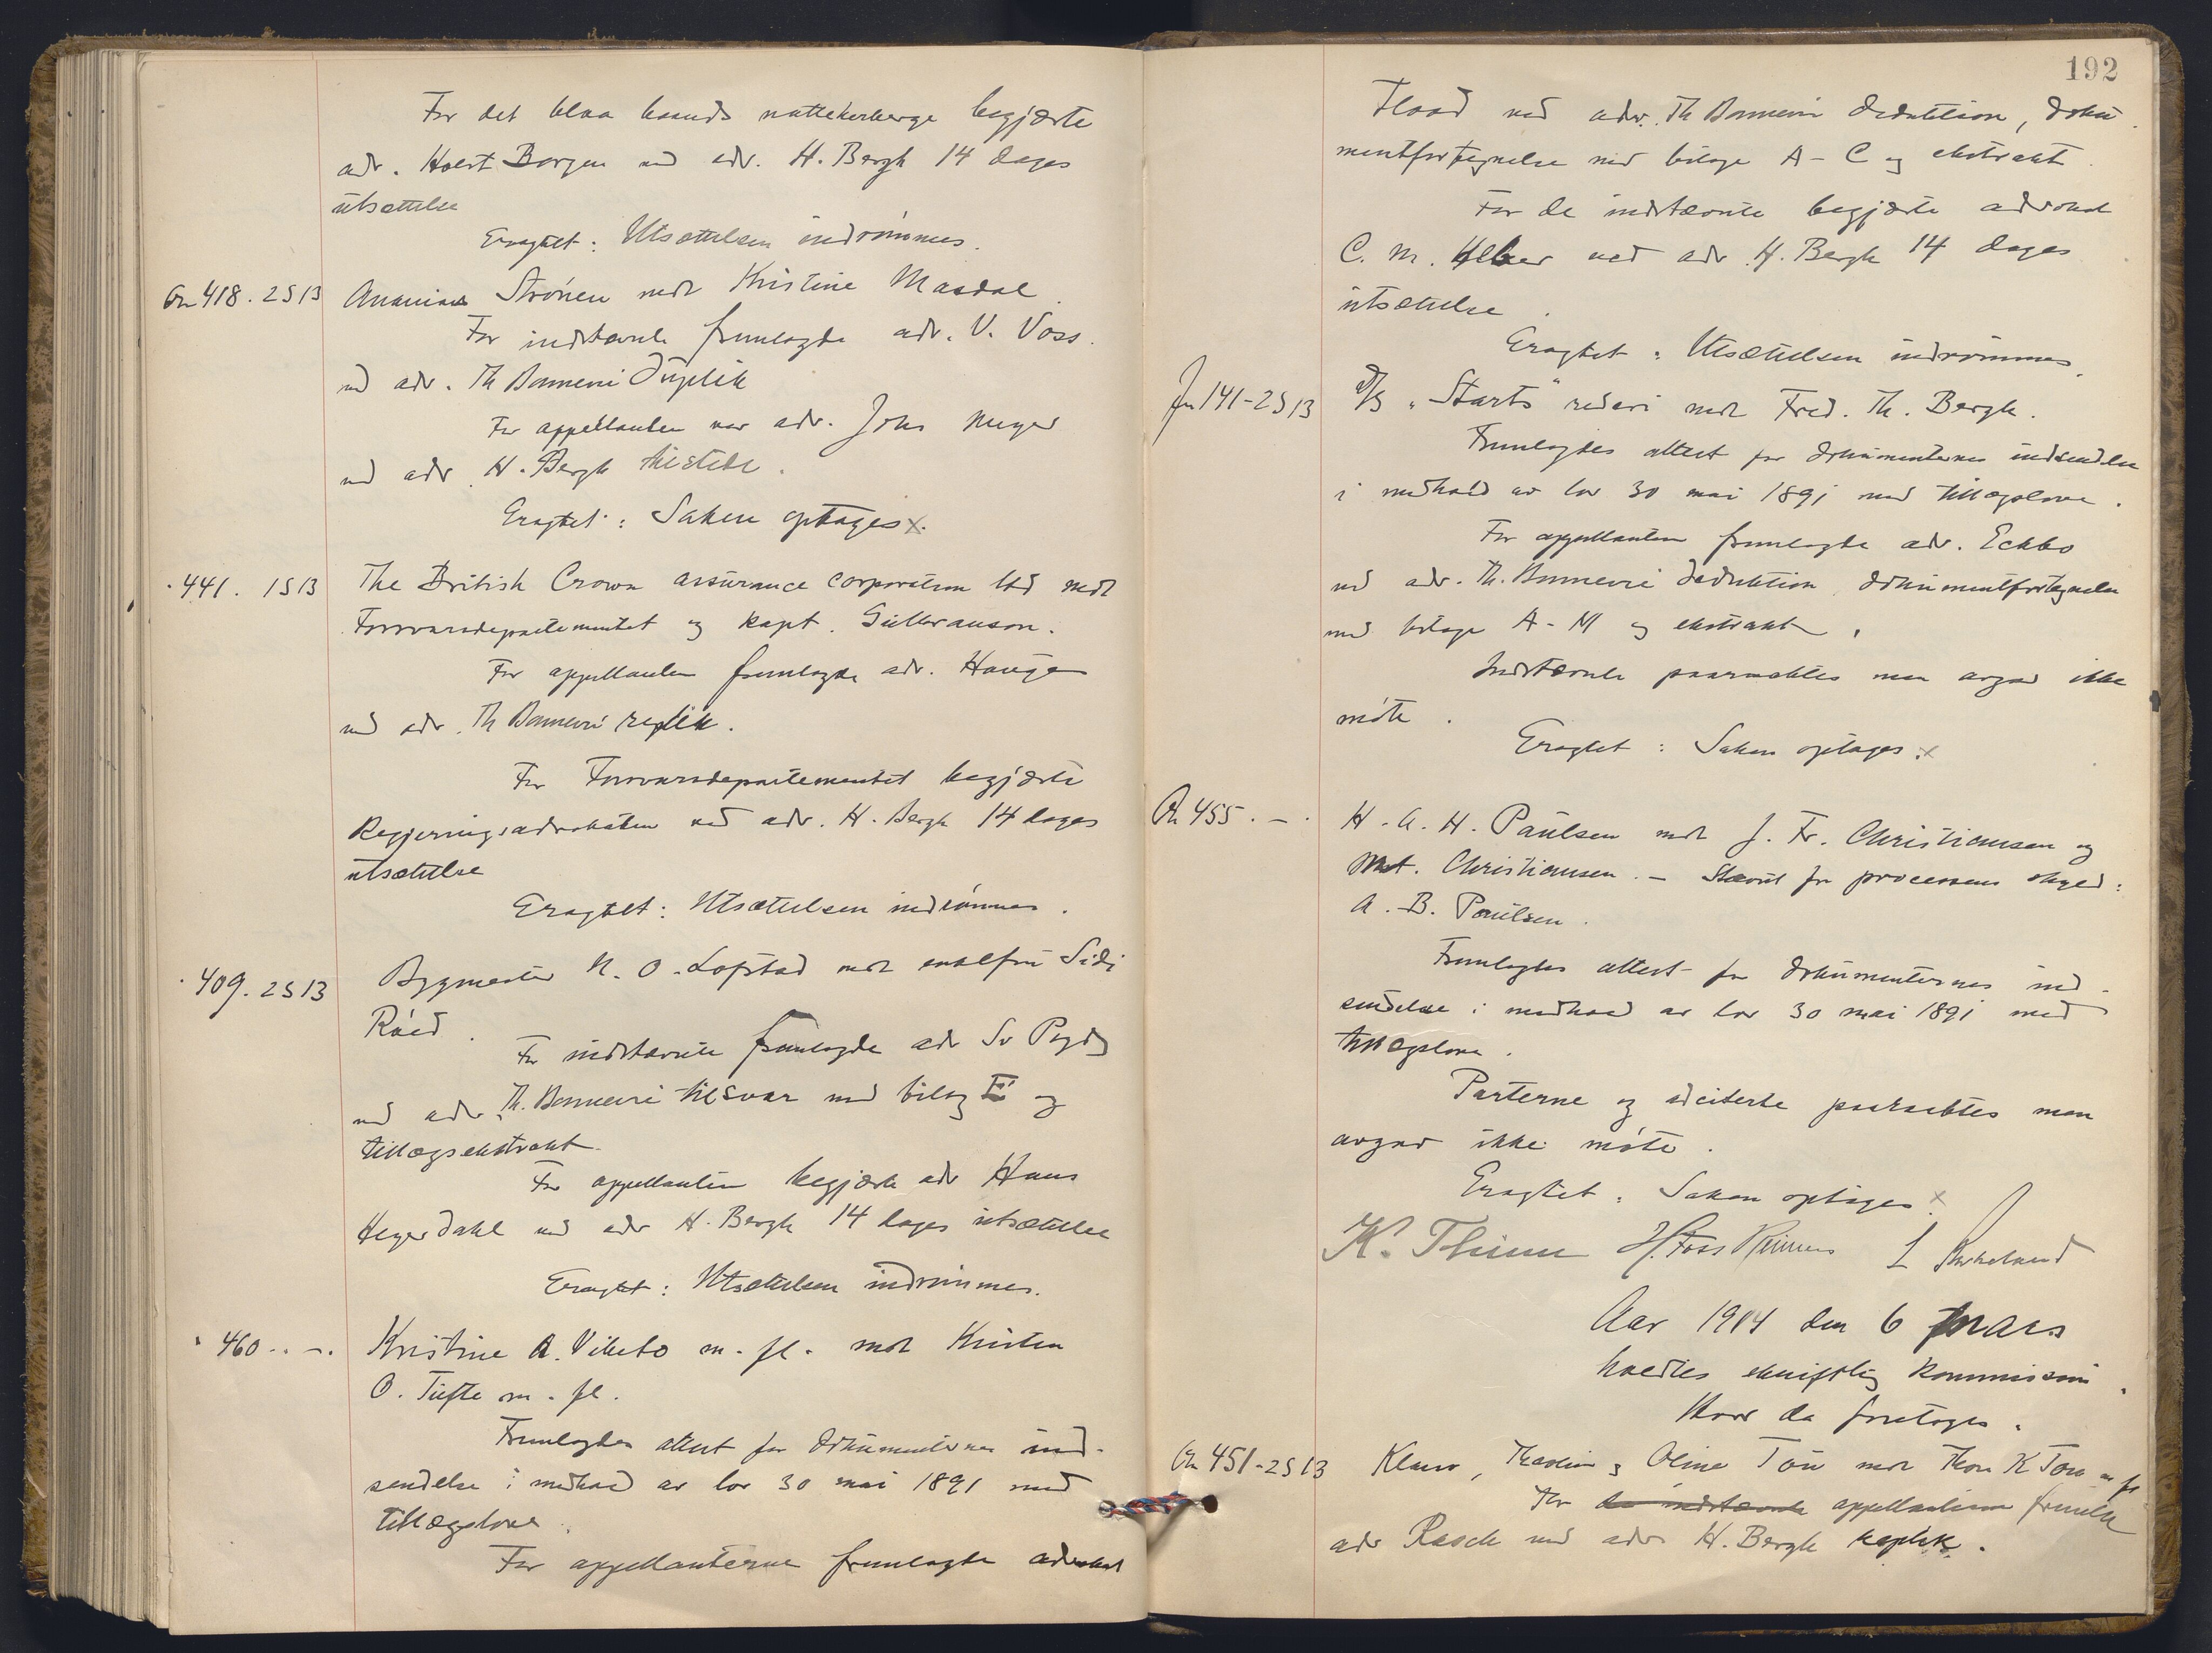 For det blaa baands natteherberge begjærte
adv. Holst Borgen ved adv. H. Bergh 14 dages
utsættelse
Eragtet: Utsættelsen indrömmes.
An 418. 2S13 Ananias Strönen mot Kristine Masdal
For indstevnte fremlagde adv. V. Voss.
ved adv. Th Bonnevie Duplik
For appellanten var adv. Johs Meyer
ved adv. H. Bergh tilstede.
Eragtet: Saken optages x.
" 441. 1S13 The British Crown assurance corporation ltd mot
Forsvarsdepartementet og kapt. Gulbranson.
For appellanten fremlagde adv. Hauge
ved adv. Th Bonnevie replik.
For Forsvarsdepartementet begjærte
Regjeringsadvokaten ved adv. H. Bergh 14 dages
utsættelse
Eragtet: Utsættelsen indrömmes.
" 409. 2S13 Bygmester N. O. Lofstad mot enkefru Sidi
Röed.
For indstævnte fremlagde adv Sv
ved adv. Th. Bonnevie tilsvar med bilag E og
tillægsekstrakt
For appellanten begjærte adv Hans
Heyerdahl ved adv H. Bergh 14 dages utsættelse
Eragtet: Utsættelsen indrömmes.
" 460. - Kristine A. Vibeto m. fl. mot Kristen
O. Tufte m. fl.
Fremlagdes attest for dokumenternes ind-
sendelse i medhold av lov 30 mai 1891 med
tillægslove.
For appellanterne fremlagde advokat
192
Flood ved adv. Th Bonnevie deduktion, doku-
mentfortegnelse med bilage A - C og ekstrakt.
For de indstævnte begjærte advokat
C. M. ved adv H. Bergh 14 dages
utsættelse.
Eragtet: Utsættelsen indrömmes.
141-2S13 D/S "Starts" rederi mot Fred. Th. Bergh.
Fremlagdes attest for dokumenternes indsendelse
i medhold av lov 30 mai 1891 med tillægslove.
For appellanten fremlagde adv. Eckbo
ved adv. Th. Bonnevie deduktion, dokumentfortegnelse
med bilage A - M og ekstrakt.
Indstævnte paaraabtes men avgav ikke
möte.
Eragtet: Saken optages. x
An 455. - H. A. H. Paulsen mot J. Fr. Christiansen og
Mat. Christiansen. - Stævnt for processens skyld:
A. B. Paulsen.
Fremlagdes attest for dokumenternes ind-
sendelse i medhold av lov 30 mai 1891 med
tillægslove.
Parterne og adciterte paaraabtes men
avgav ikke möte.
Eragtet: Saken optages. x
K. Thinn H. Foss Reimers
Aar 1914 den 6 mars
holdtes skriftlig kommission.
Hvor da foretoges.
An 451-2S13 Klara, og Oline Tou mot Thore K Tou m fl
For de indstævnte appellanterne fremla
adv Rasch ved adv H. Bergh replik.